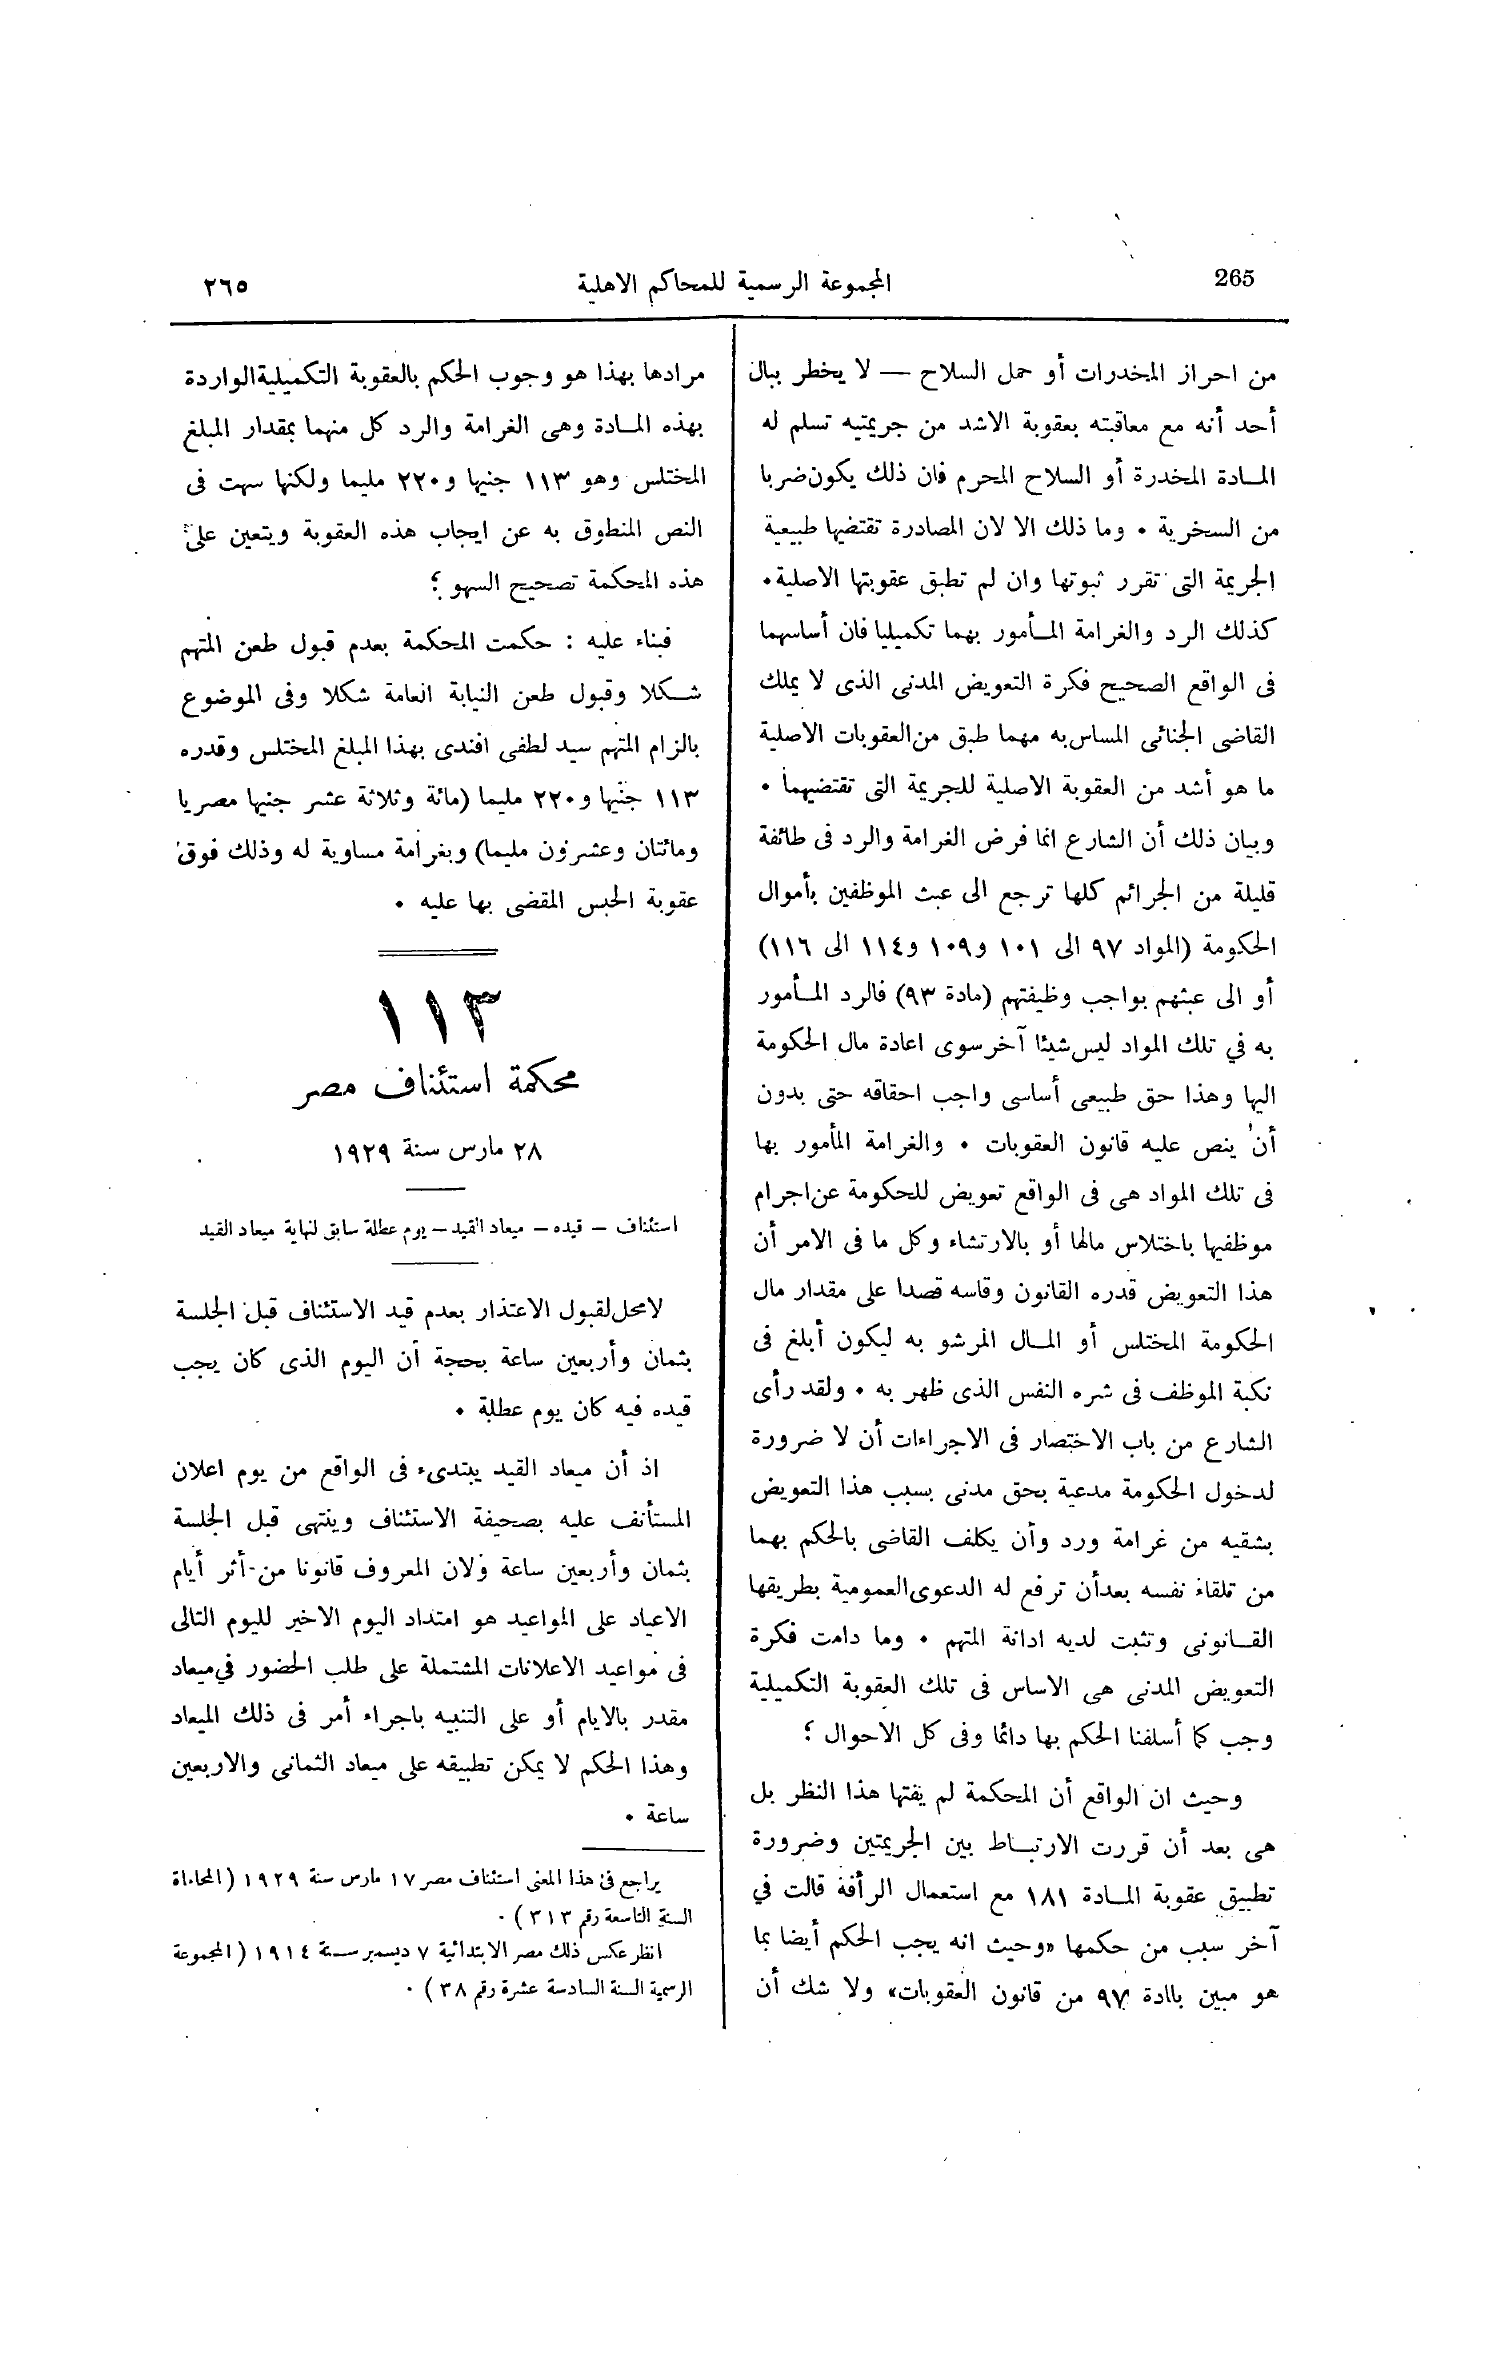 265
المجموعة الرسمية للمحاكم الاهلية
٢٦٥
من احراز المخدرات أو حمل السلاح — لا يخطر ببال
أحد أنه مع معاقبته بعقوبة الاشد من جريمتيه تسلم له
المادة المخدرة أو السلاح المحرم فان ذلك يكون ضربا
من السخرية ٠ وما ذلك الا لان المصادرة تقتضيها طبيعية
الجريمة التى تقرر ثبوتها وان لم تطبق عقوبتها الاصلية ٠
كذلك الرد والغرامة المأمور بهما تكميليا فان أساسهما
فى الواقع الصحيح فكرة التعويض المدنى الذى لا يملك
القاضى الجنائى المساس به مهما طبق من العقوبات الاصلية
ما هو أشد من العقوبة الاصلية للجريمة التى تقتضيهما ٠
وبيان ذلك أن الشارع انما فرض الغرامة والرد فى طائفة
قليلة من الجرائم كلها ترجع الى عبث الموظفين بأموال
الحكومة (المواد ٩٧ الى ١٠١ و١٠٩ و١١٤ الى ١١٦)
أو الى عبثهم بواجب وظيفتهم (مادة ٩٣) فالرد المأمور
به في تلك المواد ليس شيئا آخر سوى اعادة مال الحكومة
اليها وهذا حق طبيعى أساسى واجب احقاقه حتى بدون
أن ينص عليه قانون العقوبات ٠ والغرامة المأمور بها
فى تلك المواد هى فى الواقع تعويض للحكومة عن اجرام
موظفيها باختلاس مالها أو بالارتشاء وكل ما فى الامر أن
هذا التعويض قدره القانون وقاسه قصدا على مقدار مال
الحكومة المختلس أو المال المرشو به ليكون أبلغ فى
نكبة الموظف فى شره النفس الذى ظهر به ٠ ولقد رأى
الشارع من باب الاختصار فى الاجراءات أن لا ضرورة
لدخول الحكومة مدعية بحق مدنى بسبب هذا التعويض
بشقيه من غرامة ورد وأن يكلف القاضى بالحكم بهما
من تلقاء نفسه بعد أن ترفع له الدعوى العمومية بطريقها
القانونى وتثبت لديه ادانة المتهم ٠ وما دامت فكرة
التعويض المدنى هى الاساس فى تلك العقوبة التكميلية
وجب كما أسلفنا الحكم بها دائما وفى كل الاحوال ؛
وحيث ان الواقع أن المحكمة لم يفتها هذا النظر بل
هى بعد أن قررت الارتباط بين الجريمتين وضرورة
تطبيق عقوبة المادة ١٨١ مع استعمال الرأفة قالت في
آخر سبب من حكمها «وحيث انه يجب الحكم أيضا بما
هو مبين بالمادة ٩٧ من قانون العقوبات» ولا شك أن
مرادها بهذا هو وجوب الحكم بالعقوبة التكميلية الواردة
بهذه المادة وهى الغرامة والرد كل منهما بمقدار المبلغ
المختلس وهو ١١٣ جنيها و٢٢٠ مليما ولكنها سهت فى
النص المنطوق به عن ايجاب هذه العقوبة ويتعين على
هذه المحكمة تصحيح السهو ؛
فبناء عليه : حكمت المحكمة بعدم قبول طعن المتهم
شكلا وقبول طعن النيابة العامة شكلا وفى الموضوع
بالزام المتهم سيد لطفى افندى بهذا المبلغ المختلس وقدره
١١٣ جنيها و٢٢٠ مليما (مائة وثلاثة عشر جنيها مصريا
ومائتان وعشرون مليما) وبغرامة مساوية له وذلك فوق
عقوبة الحبس المقضى بها عليه ٠
١١٣
محكمة استئناف مصر
٢٨ مارس سنة ١٩٢٩
استئناف – قيده – ميعاد القيد – يوم عطلة سابق لنهاية ميعاد القيد
لامحل لقبول الاعتذار بعدم قيد الاستئناف قبل الجلسة
بثمان وأربعين ساعة بحجة أن اليوم الذى كان يجب
قيده فيه كان يوم عطلة ٠
اذ أن ميعاد القيد يبتدىء فى الواقع من يوم اعلان
المستأنف عليه بصحيفة الاستئناف وينتهى قبل الجلسة
بثمان وأربعين ساعة ولان المعروف قانونا من أثر أيام
الاعياد على المواعيد هو امتداد اليوم الاخير لليوم التالى
فى مواعيد الاعلانات المشتملة على طلب الحضور في ميعاد
مقدر بالايام أو على التنبيه باجراء أمر فى ذلك الميعاد
وهذا الحكم لا يمكن تطبيقه على ميعاد الثمانى والاربعين
ساعة ٠
يراجع فى هذا المعنى استئناف مصر ١٧ مارس سنة ١٩٢٩ (المحاماة
السنة التاسعة رقم ٣١٣) ٠
انظر عكس ذلك مصر الابتدائية ٧ ديسمبر سنة ١٩١٤ (المجموعة
الرسمية السنة السادسة عشرة رقم ٣٨) ٠